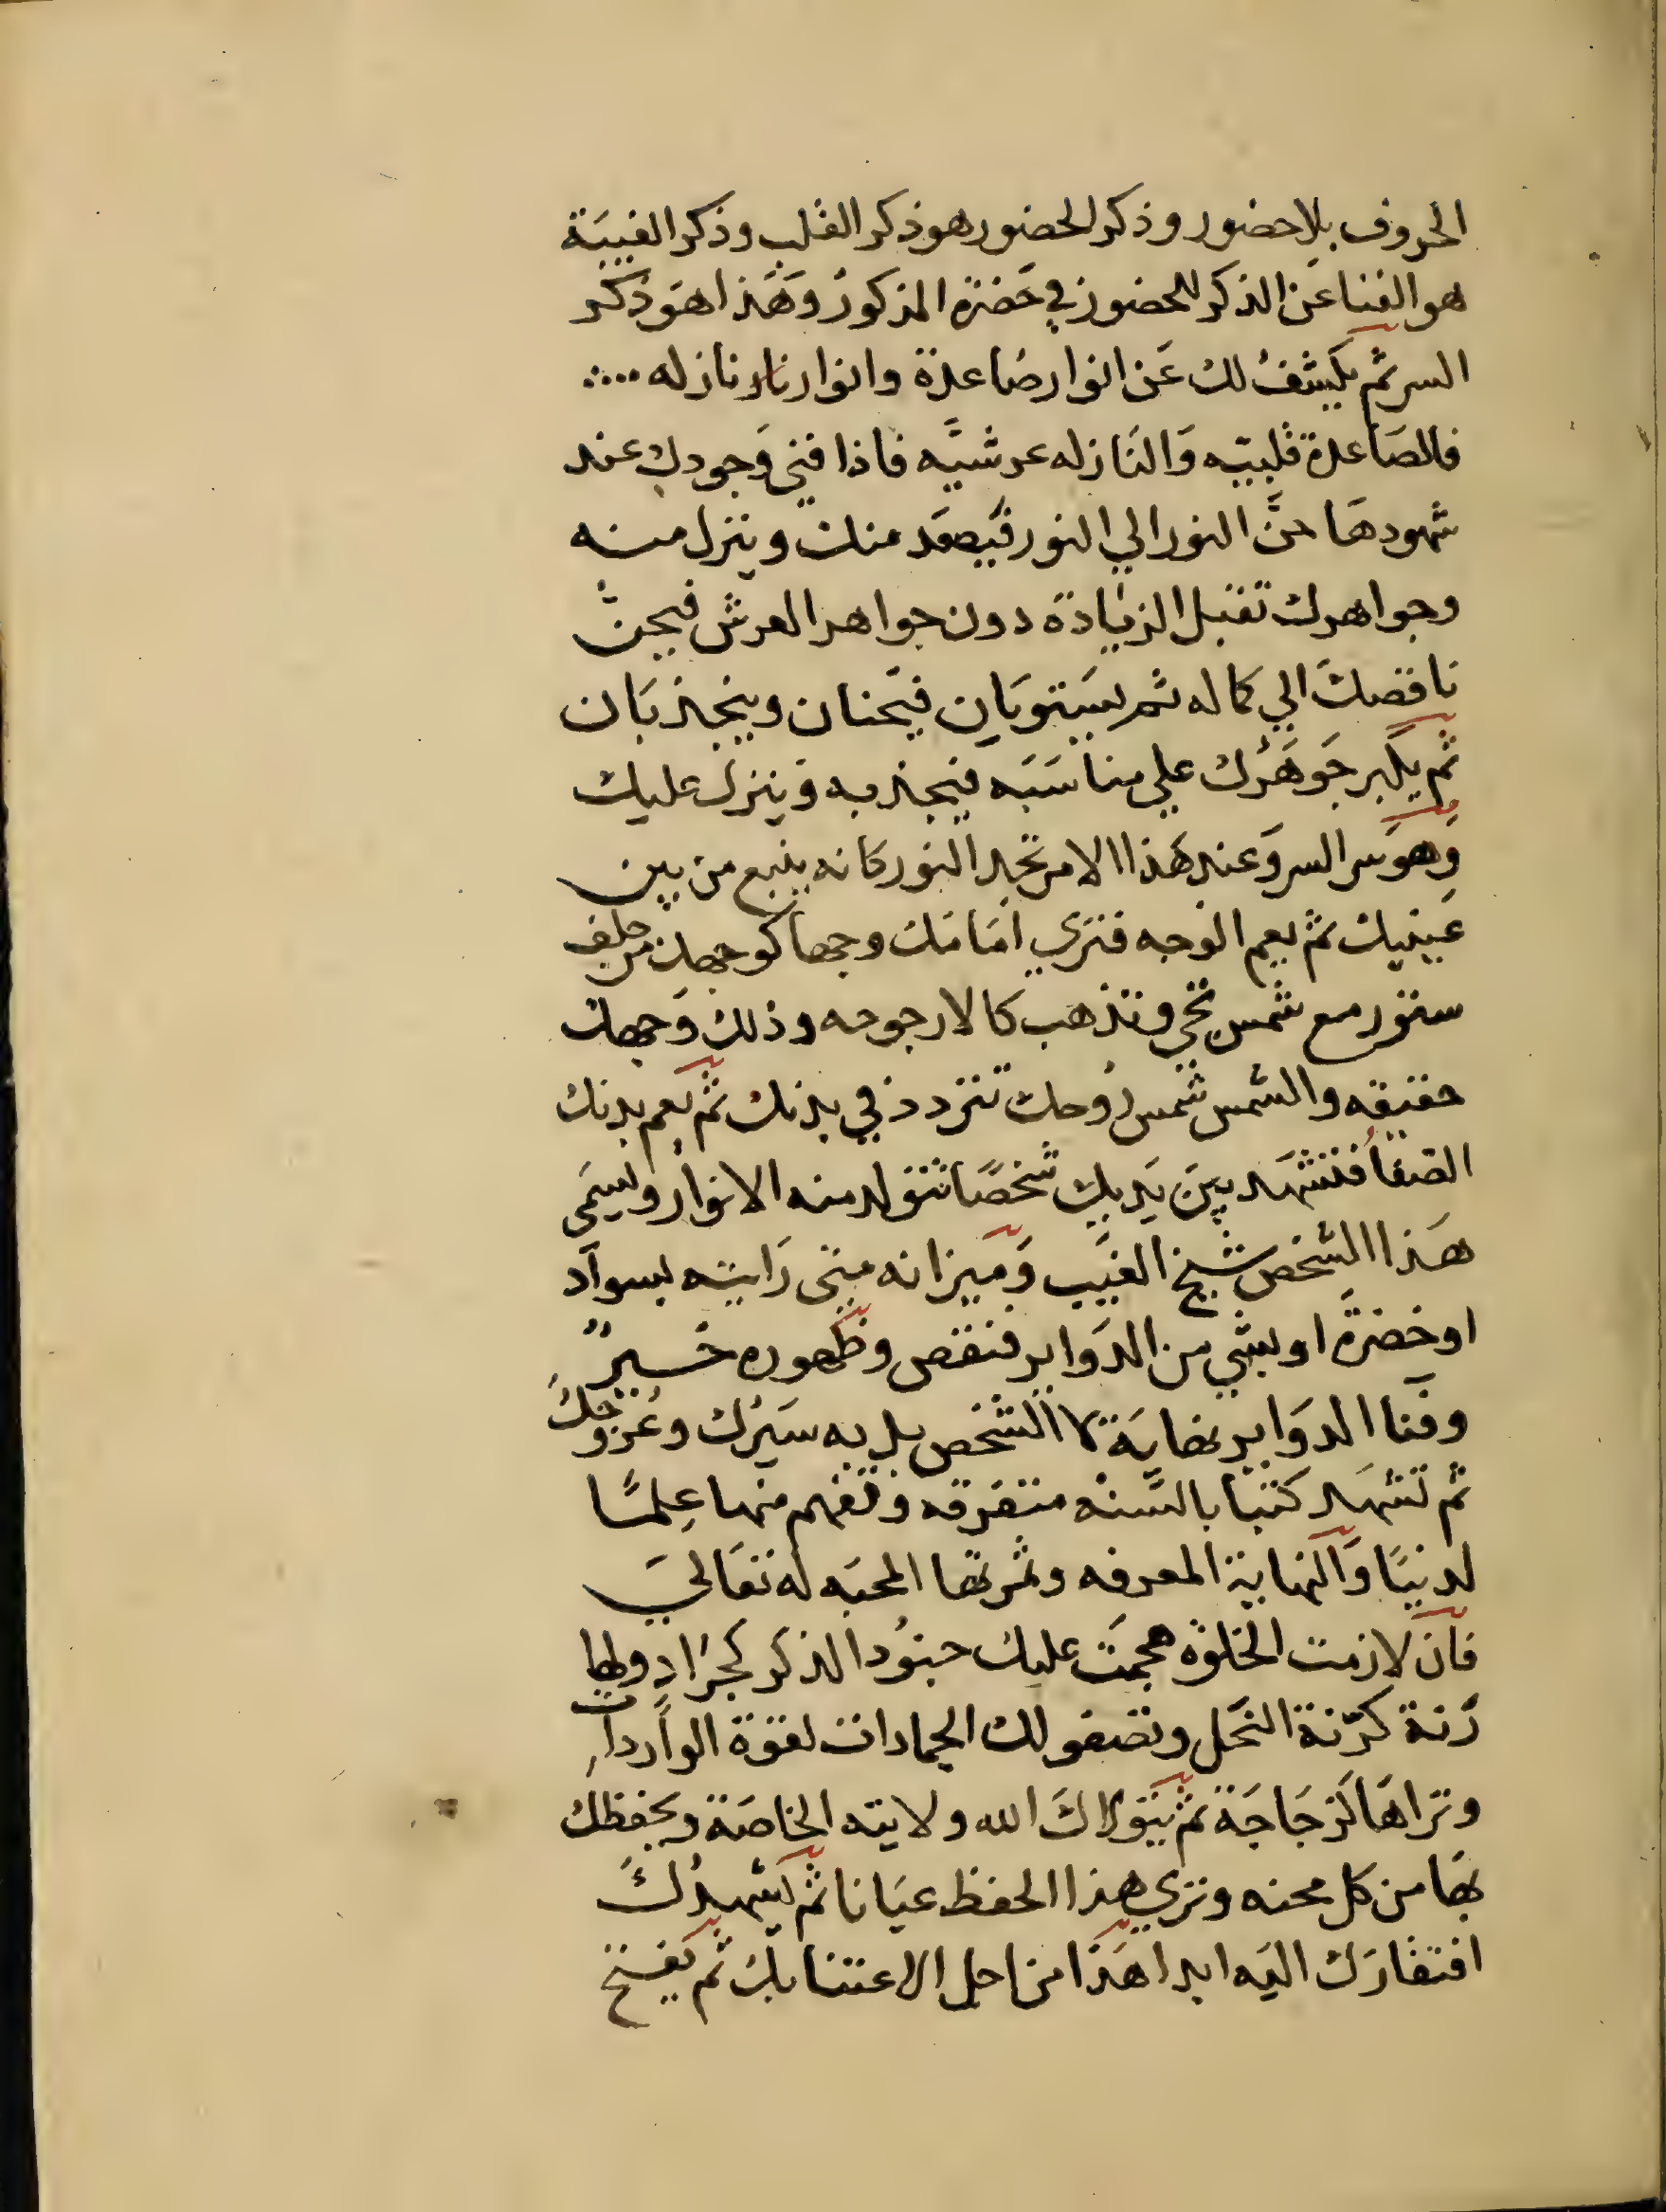 الحروف بلا حضور وذكر الحضور هو ذكر القلب وذكر الغيبَة
هو الفنا عَن الذكر للحضور في حَضرة المذكورُ وَهَذا هوَ ذكر
السر ثم يكشفُ لك عَن انوار صَاعدة وانوار نازله
فالصَاعدة قلبيّه وَالنَازله عرشيَّه فاذا فني وَجودك عند
شهودهَا حنَّ النور الي النور فيَصعَد منك وينزل منه
وجواهرك تقبل الزيَادة دون جواهر العرش فيحنُّ
ناقصكَ الي كماله ثم يسَتويَان فيَحنان وينجذبَان
ثم يكبر جَوهَرُك علي مناسَبَه فينجذب به وَينزل عليك
وَهوَ سر السر وَعند هَذا الامر تجد النور كانه ينبع من بين
عَينيك ثم يعم الوَجه فترَي امَامَك وجها كوجهك من خلف
ستور مع شمس تجي وتذهب كالارجوحه وذلك وَجهك
حقيقه والشمس شمس رُوحك تتردد في بدنك ثم يَعم بدنك
الصَفاُ فتشهَد بينَ يَديك شخصًا تتولد منه الانوارُ ويسَمي
هَذا الشخص شيخ الغيَب وَميزانه متي رَايته بسوَاد
او خضرَة او بشي من الدوَاير فنقص وظهوره خَسيرٌ
وفنَا الدوَاير نهايَة لا الشخص بل به سَيرُك وعُروُجك
ثم تشهَد كتبا بالسَنْه متفرقه وتفهم منها عِلمًا
لدنيًا وَالنهاية المعرفه وثمرتها المحبَه له تعَاليَ
فان لازمت الخلوَة هجمَت عليك جنوُد الذكر كجرَادِ ولها
رَنة كرّنة النحَل وتصَفو لك الجمادات لقوَة الوَاردات
وترَاهَا كَزجَاجَة ثم يتوَلاكَ الله ولايته الخاصَة وَيحفظك
بهَا من كل محنه وترَي هذا الحفظ عيَانا ثم يشهدُكَ
افتقارَك اليَه ابدا هَذا من اجل الاعتنا بك ثم يَفتح